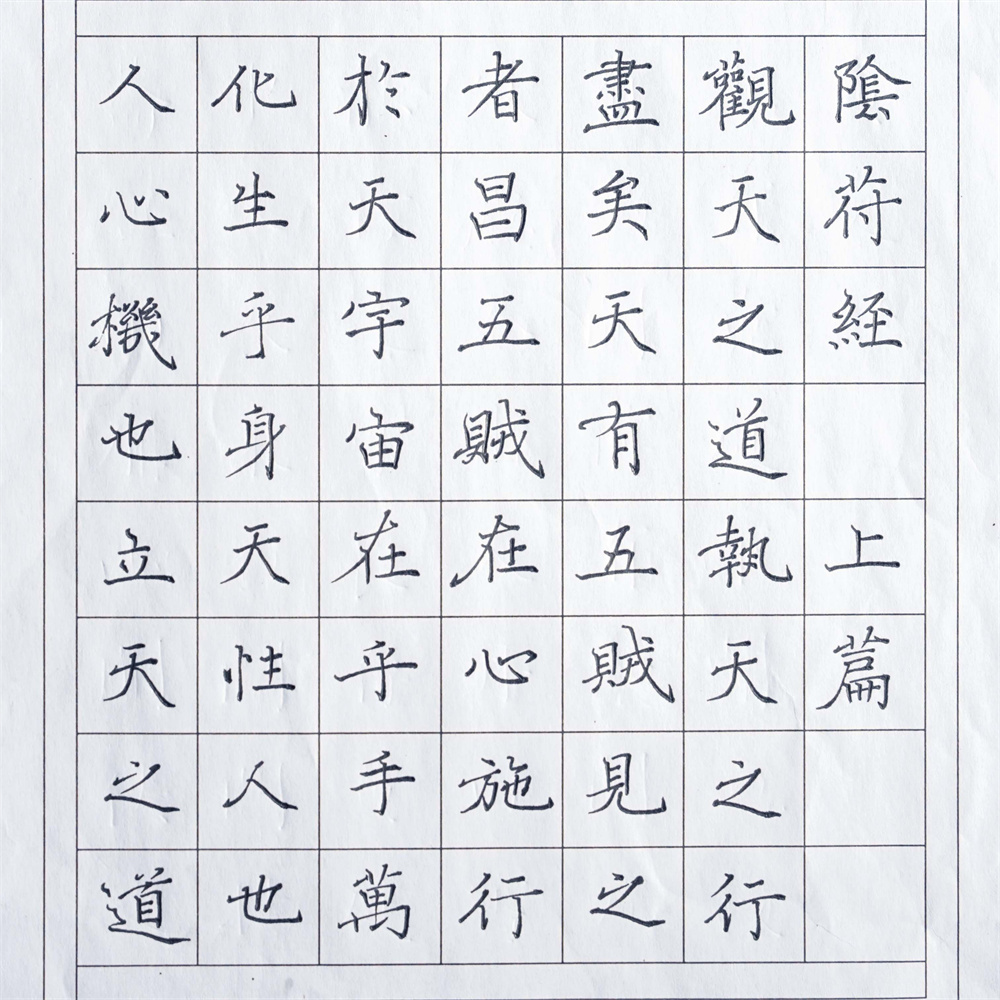 陰符經 上篇
觀天之道執天之行
盡矣天有五賊見之
者昌五賊在心施行
於天宇宙在乎手萬
化生乎身天性人也
人心機也立天之道